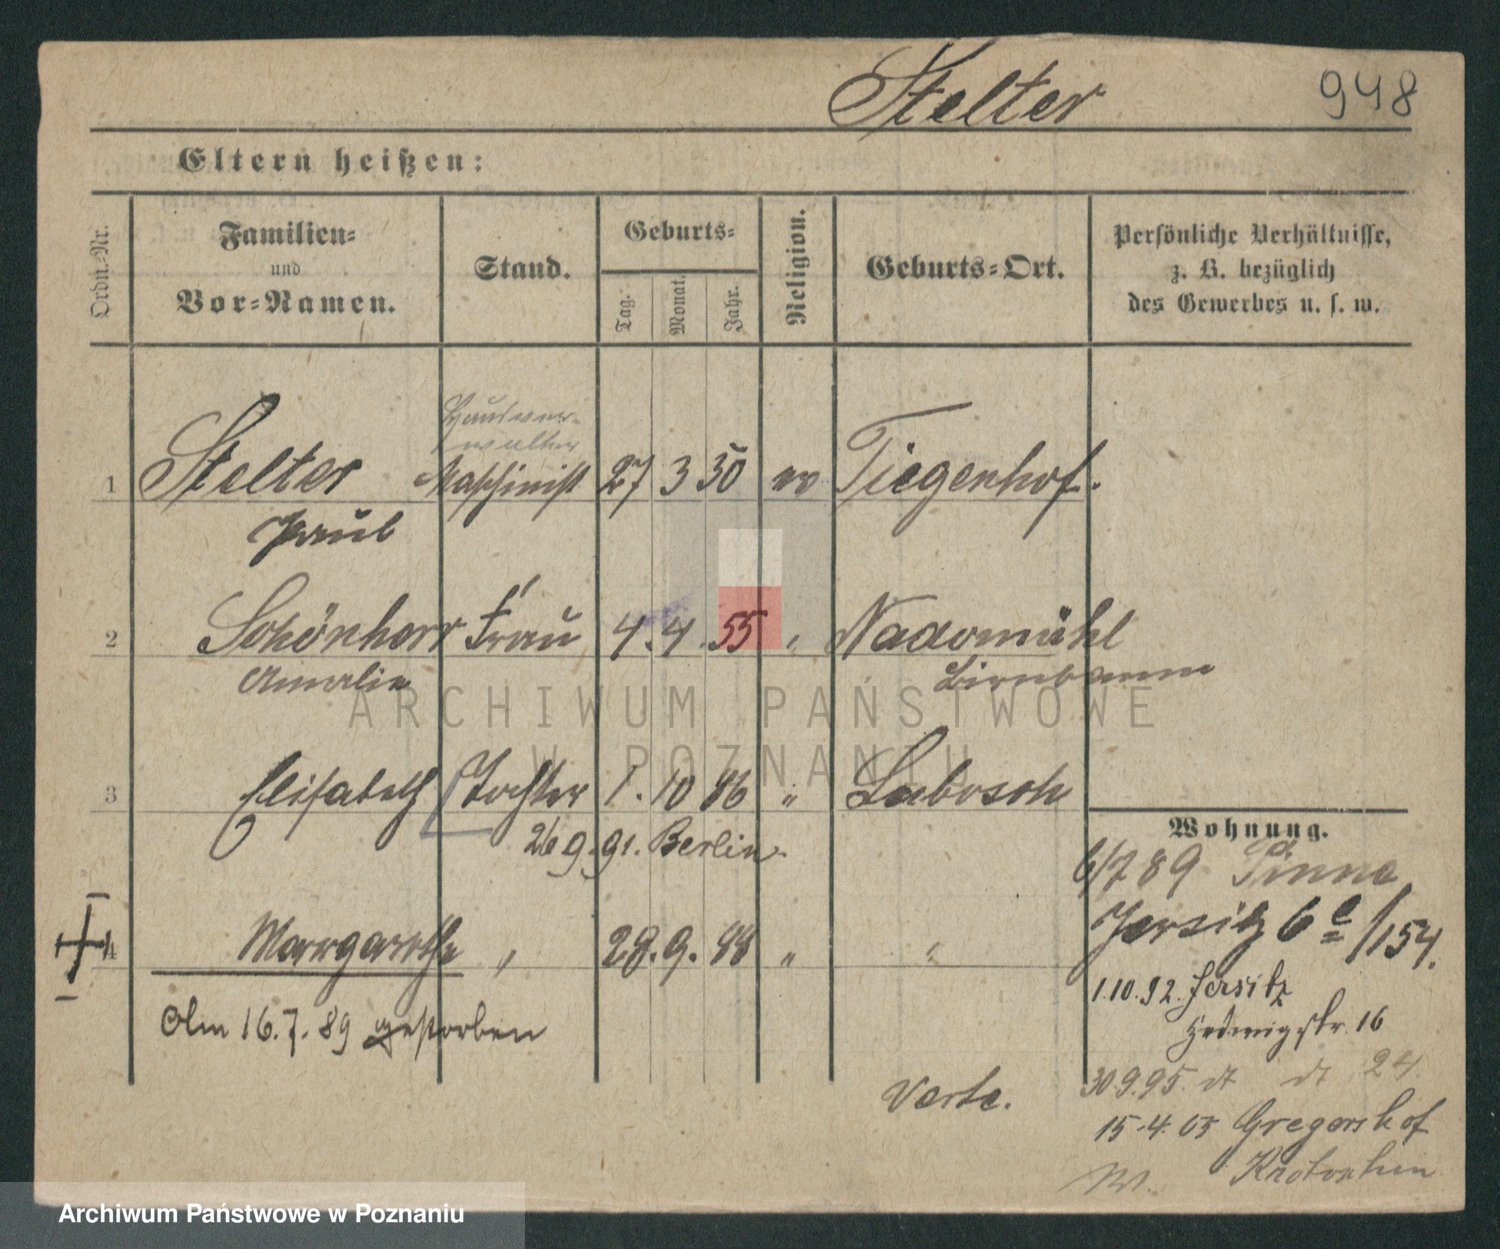 Stelter 948
Eltern heißen:
Ordn.-Nr.
Familien-
und
Vor-Namen.
Stand.
Geburts-
Tag. Monat. Jahr.
Religion.
Geburts-Ort.
Persönliche Verhältnisse,
z. B. bezüglich
des Gewerbes u. s. w.
Hausver-
walter
1 Stelter Maschinist 27 3 50 ev Tiegenhof.
Paul
2 Schönherr Frau 4. 4. 55 " Nadomühl
Amalie Birnbaum
ARCHIWUM PAŃSTWOWE
W POZNANIU
3 Elisabeth Tochter 1. 10 86 " Labosch
26 9. 91. Berlin.
Wohnung.
6/7 89 Pinne
4 Margarethe " 28. 9. 88 " "
Jersitz 6e/154.
1.10.92. Jersitz
Am 16.7.89 gestorben
Hedwigstr. 16
30.9.95. dt dt 24.
Verte.
15.4.03 Gregorshof
W. Krotoschin
Archiwum Państwowe w Poznaniu